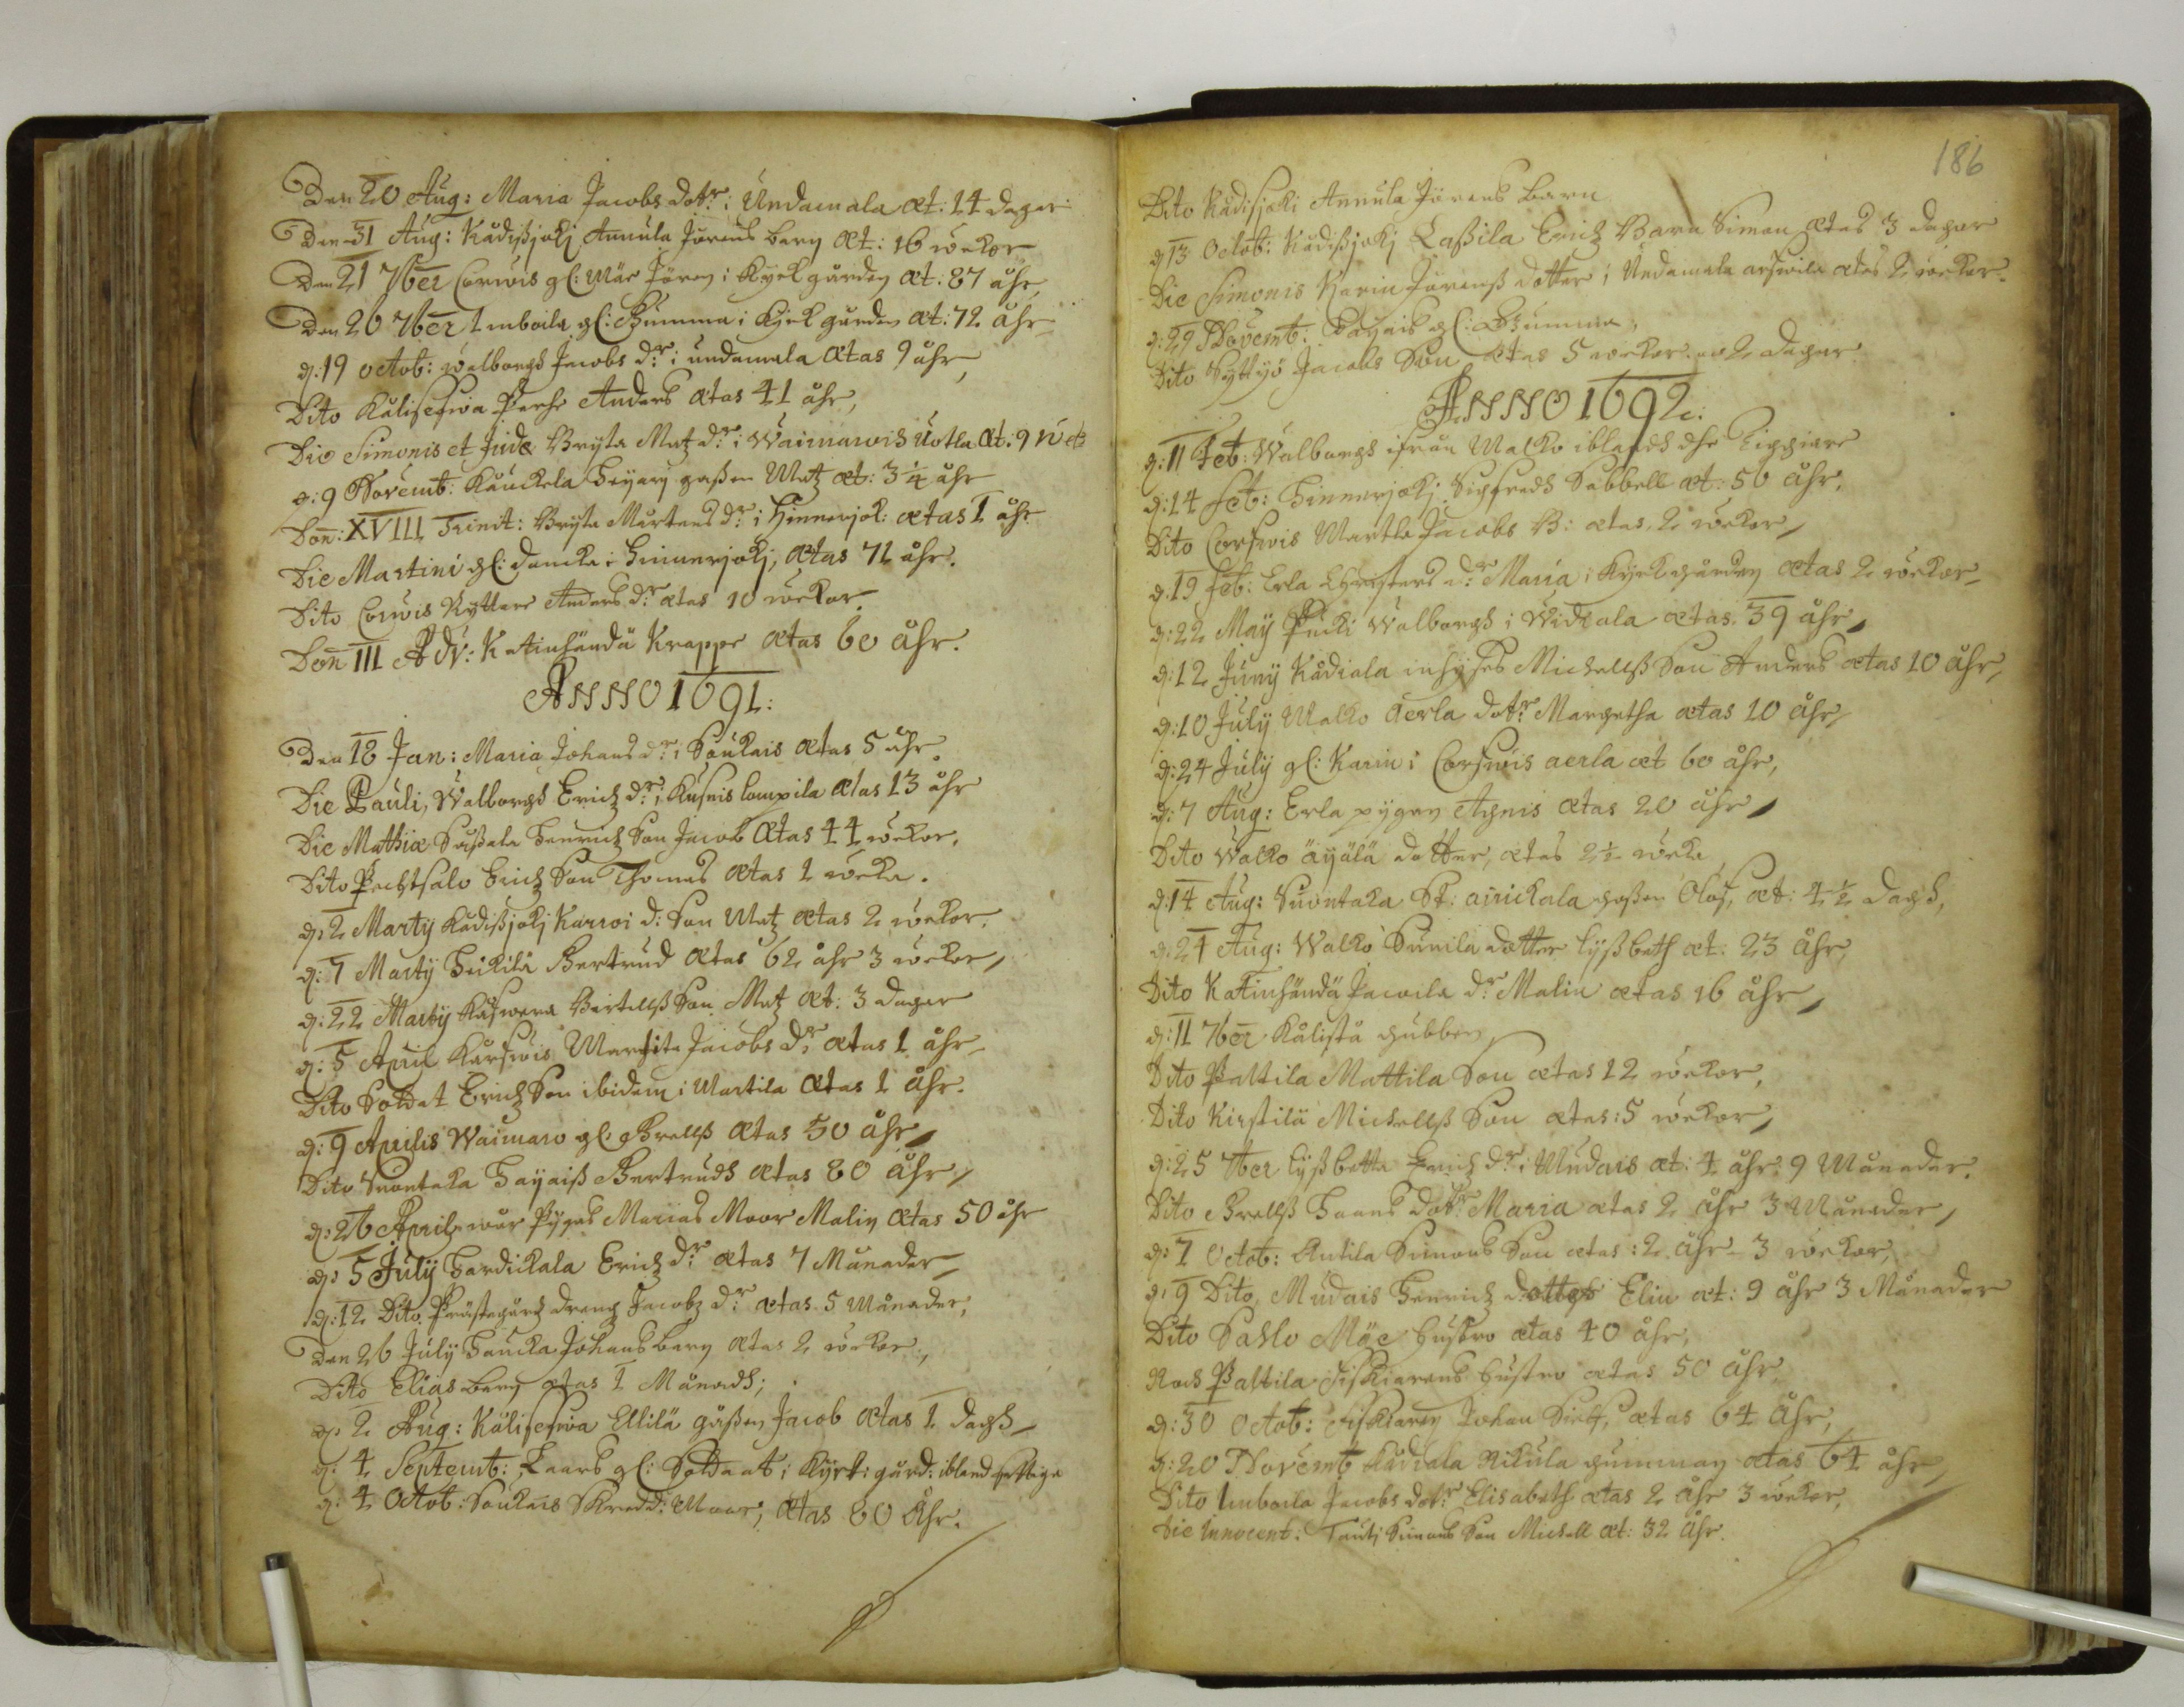 Den 20 Aug: Maria Jacobs dotr: i Undamala æt: 14 dagar
Den 31 Aug: Kådisjokj Annula Jörens barn Æt: 16 wekor
Den 21 7ber Corwois gl: Mår Jören i Kyrkgården æt: 87 åhr,
Den 26 7ber Imboila gl: Gumma i Kyrkgården æt: 72 åhr
d: 19 octob: walborgh Jacobs dr: i undamala ætas 9 åhr,
Dito Kålisefwa Perhe Anders ætas 41 åhr,
Die Simonis et Judæ Bryta Matz dr: i Waimarois Uotla Æt. 9 wek
d: 9 Novemb: Kauckela gossen Matz æt: 3 1/4 åhr
Don: XVIII Trinit: Bryta Mårtens dr: i Hinnerjok: ætas 1 åhr
Die Martini gl: Dancka i Hinnerjokj, ætas 71 åhr.
Dito Corwois Ryttare Anders dr: ætas 10 wekor
Don III Adv: Katinhändä Knappe ætas 60 åhr.
ANNO 1691:
Den 18 Jan: Maria Johans dr: i Soukais ætas 5 åhr.
Die Pauli, Walborgh Erichz dr: i Kusnis lompila ætas 13 åhr
Die Mathiæ Sussala Henrichz Son Jacob Ætas 44 wekor,
Dito Pechtsalo Erichz Son Thomas ætas 1 weka.
d: 2 Martij Kådisjokj Karwoi d: Son Matz ætas 2 wekor.
d: 7 Martij Heikilä Bertrud ætas 62 åhr 3 wekor,
d: 22 Martij Bertillss Son Matz æt: 3 dagar
d: 5 April Karfwois Martita Jacobs dr ætas 1 åhr
Dito Soldat Erichz Son ibidem i Martila ætas 1 åhr.
d: 9 Aprilis Waimaro gl: Grellss ætas 50 åhr
Dito Suontaka Hayaiss Bertrudh ætas 80 åhr,
d: 26 Aprilis wår Pygas Marias Moor Malin ætas 50 åhr
d: 5 July Hardickala Erichz dr: ætas 7 Månader
d: 12 Dito Prästegårdz dreng Jacobz dr: ætas 5 Månader,
Den 26 July Haucka Johans barn ætas 2 wekor,
Dito Elias barn ætas 1 Månadh;
d: 2 Aug: Kålisefwa Ellilä gåssen Jacob ætas 1 dagh
d: 4 Septemb: Laars gl: Soldaat i Kyrk:gård: ibland fattiga
d: 4 Octob: Soukais Skredd: Moor, ætas 80 åhr.
186
Dito Kådisjoki Annula Jörens barn
d 13 Octob: Kådissjokj Lassila Erichz Barn Simon ætas 3 dagar
Die Simonis Karin Jörenss dotter i Undamala ætas 2 wekor.
d: 29 Novemb: gl: Gumma,
Dito Jacobs Son ætas 5 wekor 2 dagar
ANNO 1692:
d: 11 Feb: Walborgh ifrån Walko iblandh dhe Tiggiare
d: 14 Feb: Hinnerjokj Sigfredh Sabbell æt: 50 åhr,
Dito Corfwois Martta Jacobs B: ætas 2 wekor,
d. 19 Feb: Erla Christers dr Maria i Kyrkgården ætas 2 wekor
d: 22 May Pucki Walborgh i Widiala ætas 39 åhr,
d: 12 Juny Kådiala inhyses Michellss Son Anders ætas 10 åhr,
d: 10 July Walko aerla dotr Margetha ætas 10 åhr,
d: 24 July gl: Karin i Corfwois aerla æt 60 åhr,
d: 7 Aug: Erla pygan Agnis ætas 20 åhr,
Dito Walko äyälä dotter, ætas 2 1/2 weka
d: 14 Aug: Suontaka St: airickala gossen Olof, æt: 4 1/2 dagh,
d. 21 Aug: Walko Sunila dotter lyssbeth æt: 23 åhr,
Dito Katinhändä Pawila dr: Malin ætas 16 åhr,
d: 11 7ber Kålista gubben,
Dito Paltila Mattila Son ætas 12 wekor,
Dito Kirstilä Michellss Son ætas: 5 wekor,
d: 25 7ber lyssbetta Erichz dr: i Mudais æt: 4 åhr 9 Månader.
Dito Grellss Hans dotr Maria ætas 2 åhr 3 Månader,
d: 7 Octob: Antila Simons Son ætas: 2 åhr 3 wekor,
d: 9 Dito, Mudais Henrichz dotter Elin æt: 9 åhr 3 Månader
Dito Pasko Mäe hustro ætas 40 åhr,
Noch Paltila Fiskiarens hustro ætas 50 åhr,
d: 30 Octob: Fiskiaren Johan Sielf, ætas 64 åhr,
d: 20 Novemb Kådiala Nikula gumman ætas 64 åhr,
Dito Imboila Jacobs dotr Elisabeth ætas 2 åhr 3 wekor,
Die Innocent: Tauti Simons Son Michell æt: 32 åhr.